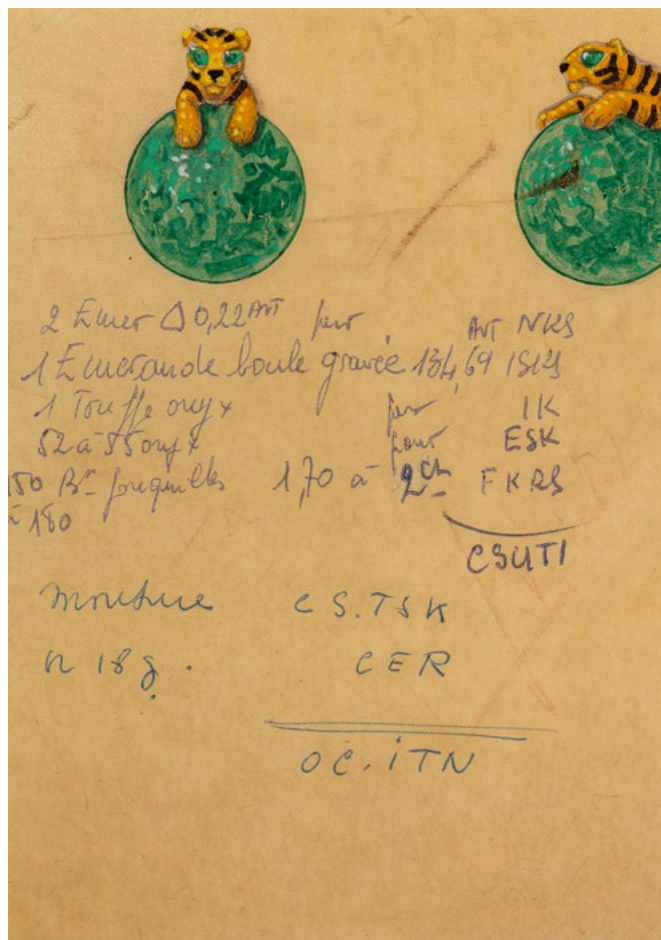 2 Emer △ 0,22 Art pour Art NKS
1 Emeraude boule gravée 134,69 ISKS
1 Touffe onyx pour IK
52 à 55 onyx pour ESK
150 Bts jonquilles 1,70 à 2 cts FKRS
à 180
CSUTI
monture CS.TSK
18 g. CER
OC.ITN